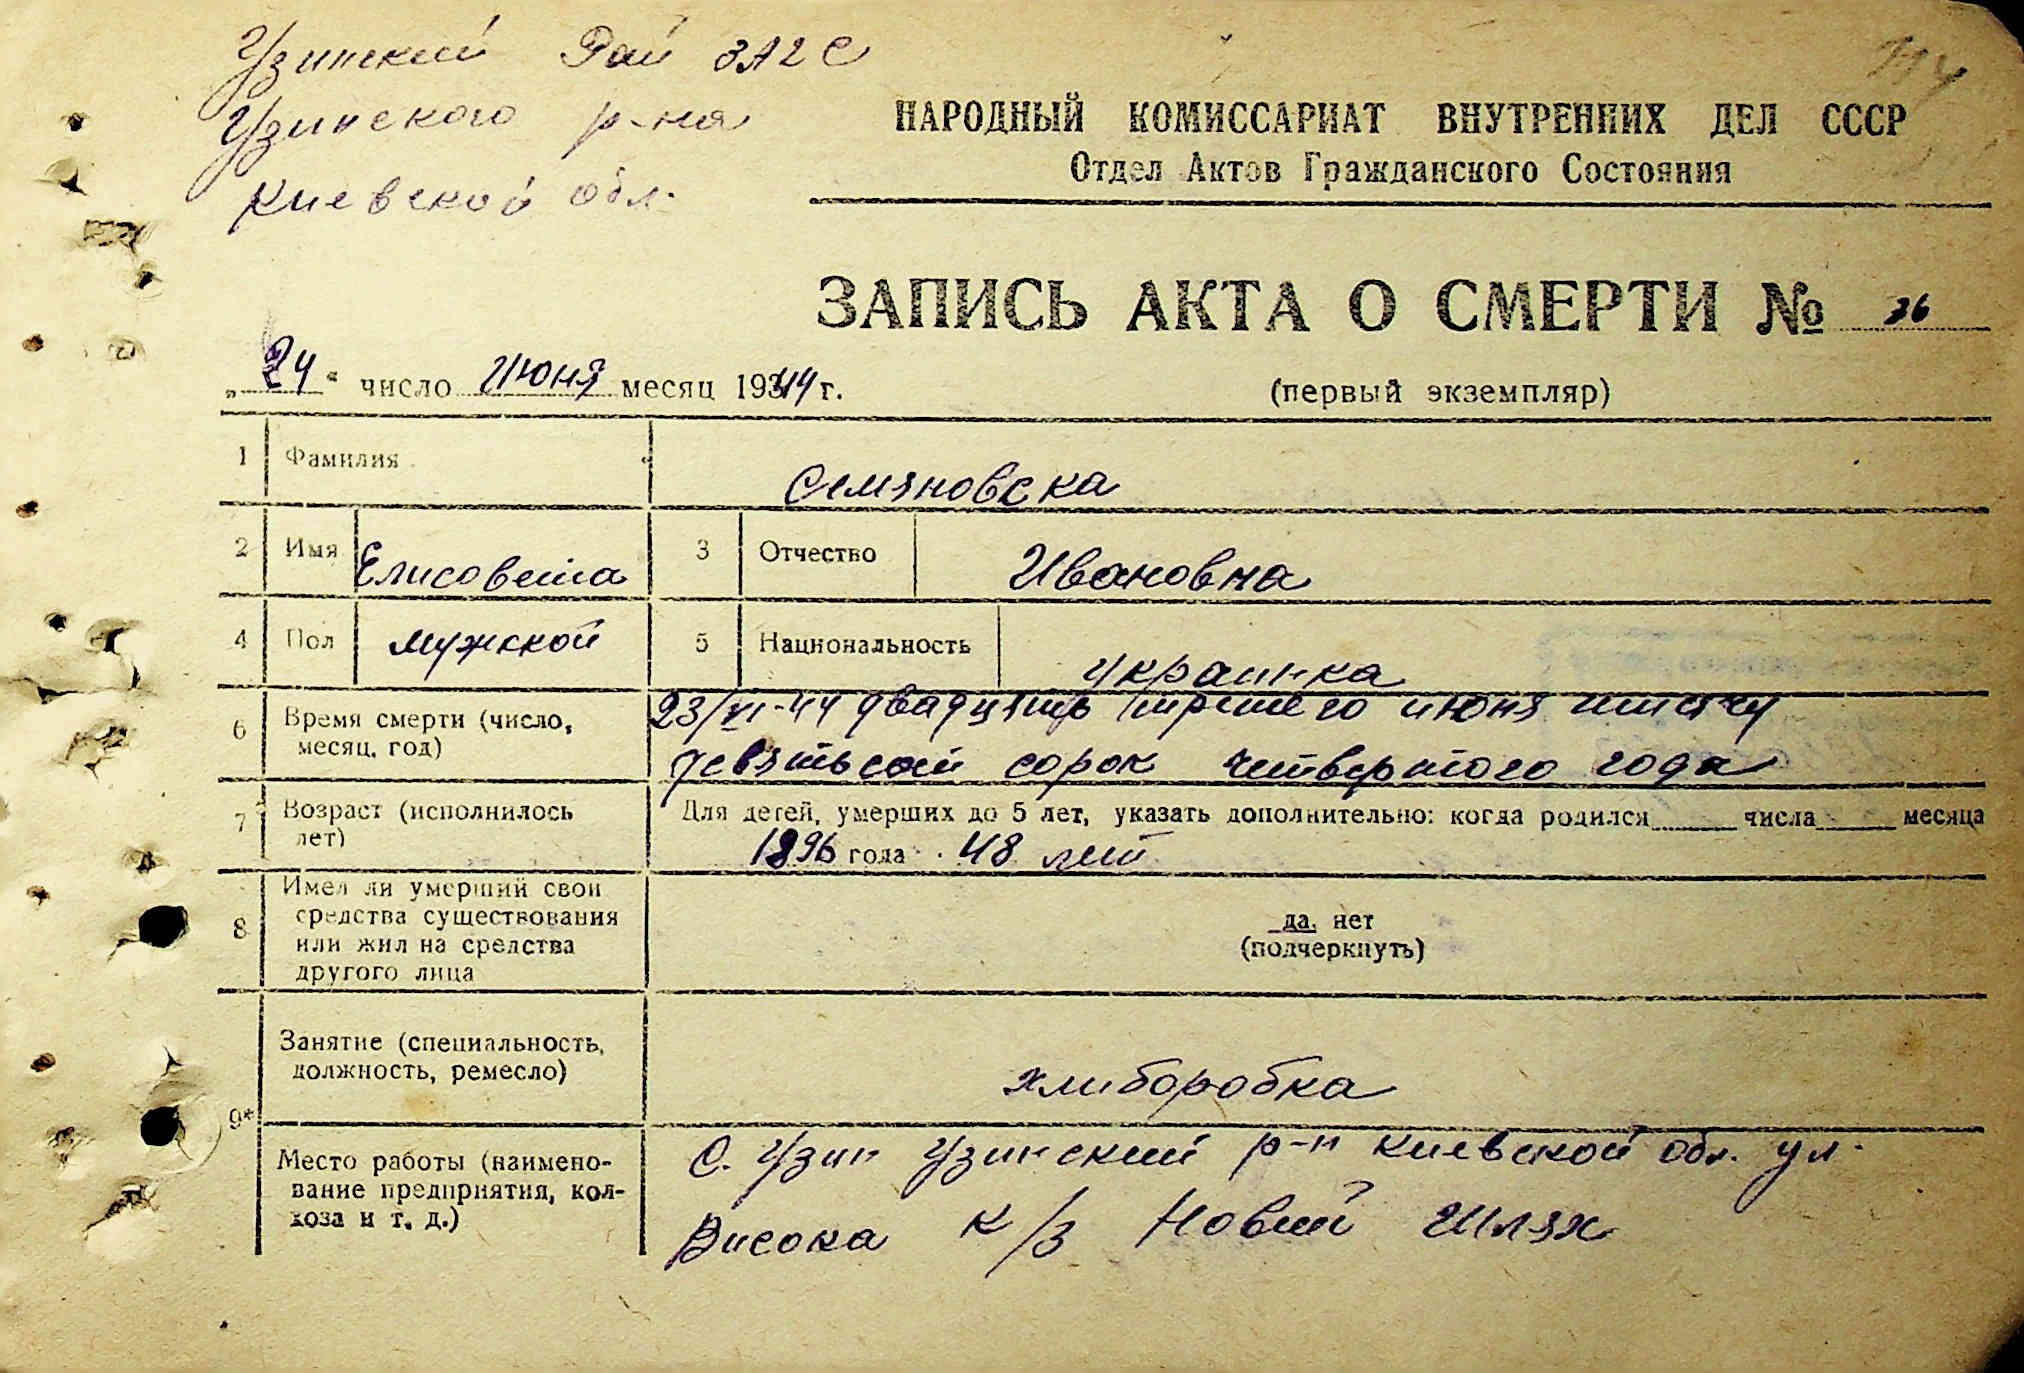 Узинский Рай ЗАГС
Узинского р-на
Киевской обл.
НАРОДНЫЙ КОМИССАРИАТ ВНУТРЕННИХ ДЕЛ СССР
Отдел Актов Гражданского Состояния
ЗАПИСЬ АКТА О СМЕРТИ № 36
„24“ число июня месяц 1944 г.
(первый экземпляр)
1 Фамилия Семяновска
2 Имя Елисовета 3 Отчество Ивановна
4 Пол мужской 5 Национальность украинка
6 Время смерти (число, месяц, год) 23/VI-44 двадцять третего июня тисячу
девятьсот сорок четвертого года
7 Возраст (исполнилось лет) Для детей, умерших до 5 лет, указать дополнительно: когда родился числа месяца
1896 года. 48 лет
8 Имел ли умерший свои
средства существования
или жил на средства
другого лица
да, нет
(подчеркнуть)
9* Занятие (специальность,
должность, ремесло)
хлиборобка
Место работы (наимено-
вание предприятия, кол-
хоза и т. д.)
С. Узин Узинский р-н Киевской обл. ул.
Висока к/з Новий Шлях